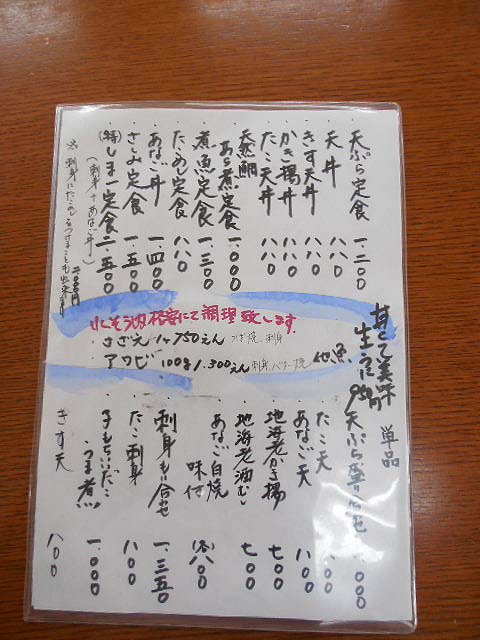 天ぷら定食 一.二〇〇
天丼 八八〇
きす天丼 八八〇
かき揚丼 八八〇
たこ天丼 八八〇
天然鯛
あら煮定食 一.〇〇〇
煮魚定食 一.三〇〇
たこめし定食 八八〇
あなご丼 一.四〇〇
さしみ定食 一.五〇〇
(特)しま一定食 二.五〇〇
(刺身+あなご丼)
※刺身にたこめし
二〇〇〇円
格安にて調理致します.
さざえ 1ヶ750えん つぼ焼 刺身
アワビ 100g1.300えん 刺身.バター焼
甘くて美味
単品
天ぷら盛り合せ 一.〇〇〇
たこ天
あなご天 八〇〇
地海老かき揚 七〇〇
地海老油むし 七〇〇
あなご白焼
味付 八〇〇
刺身もり合せ 一.三五〇
たこ刺身 八〇〇
子もちいいだこ
うま煮 一.〇〇〇
きす天 八〇〇